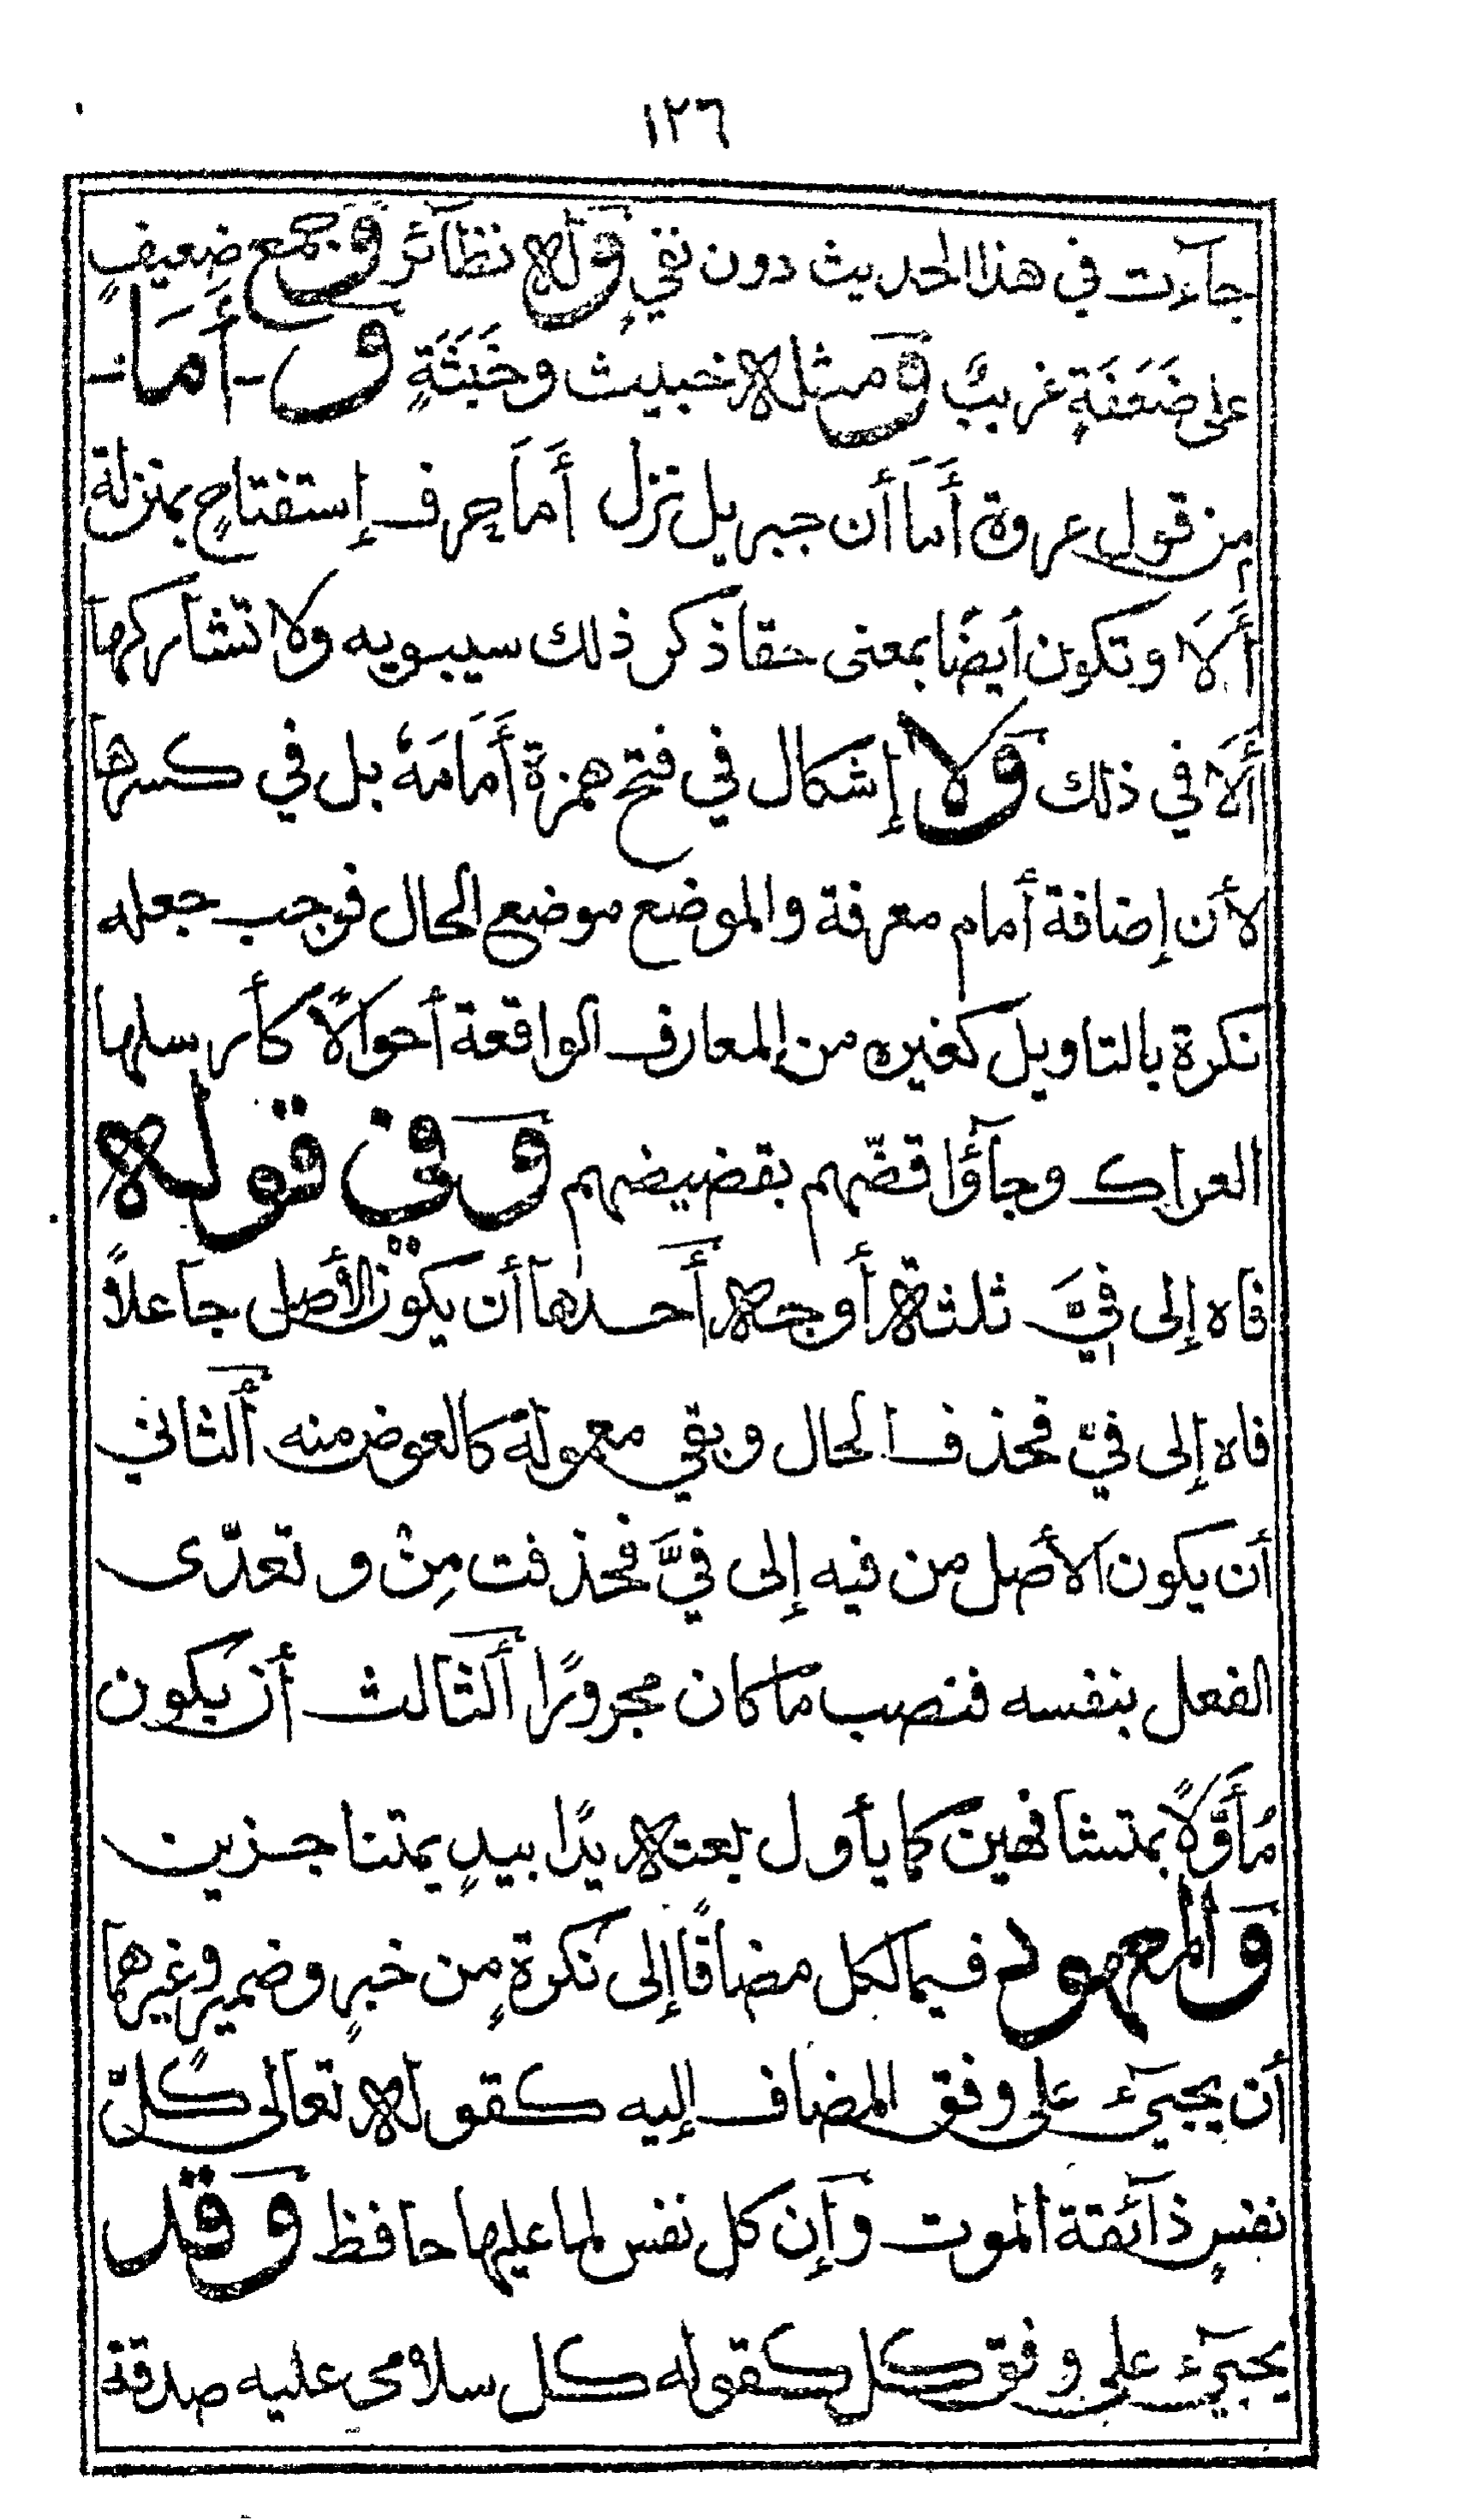 ١٢٦
جآءت في هذا الحديث دون نفي وله نظآئر وجمع ضعيفٍ
على ضَعَفَةٍ غريبٌ ومثله خبيث وخَبَثَةٍ و - أَمَا -
مِن قول عروة أَمَا أن جبريل نزل أَمَا حرف إستفتاحٍ بمنزلة
أَلَا وتكون أيضًا بمعنى حقا ذكر ذلك سيبويه ولا تشاركها
أَلَا في ذلك وَلا إشكال في فتح همزة أَمَامَهُ بل في كسرها
لأن إضافة أمام معرفة والموضع موضع الحال فوجب جعله
نكرة بالتاويل كغيره من المعارف الواقعة أحوالًا كأرسلها
العراك وجآؤا قضّهم بقضيضهم وَفي قوله
فاه إلى فِيَّ ثلثة أوجه أحدها أن يكون الأصل جاعلاً
فاه إلى فيّ فحذف الحال وبقي معموله كالعوض منه ألثاني
أن يكون الأصل من فيه إلى فيَّ فحذفت مِنْ وتعدّى
الفعل بنفسه فنصب ما كان مجرورًا ألثالث أن يكون
مُأَوَّلًا بمتشافهين كما يأول بعته يدًا بيدٍ بمتناجزين
وَالمعهود فيما لكل مضافًا إلى نكرةٍ من خبرٍ وضميرٍ وغيرهما
أن يجيٓء على وفق المضاف إليه كقوله تعالى كلّ
نفسٍ ذآئقة الموت وَإن كل نفس لما عليها حافظ وَقد
يجيٓء على وفق كل كقوله كل سلامى عليه صدقة